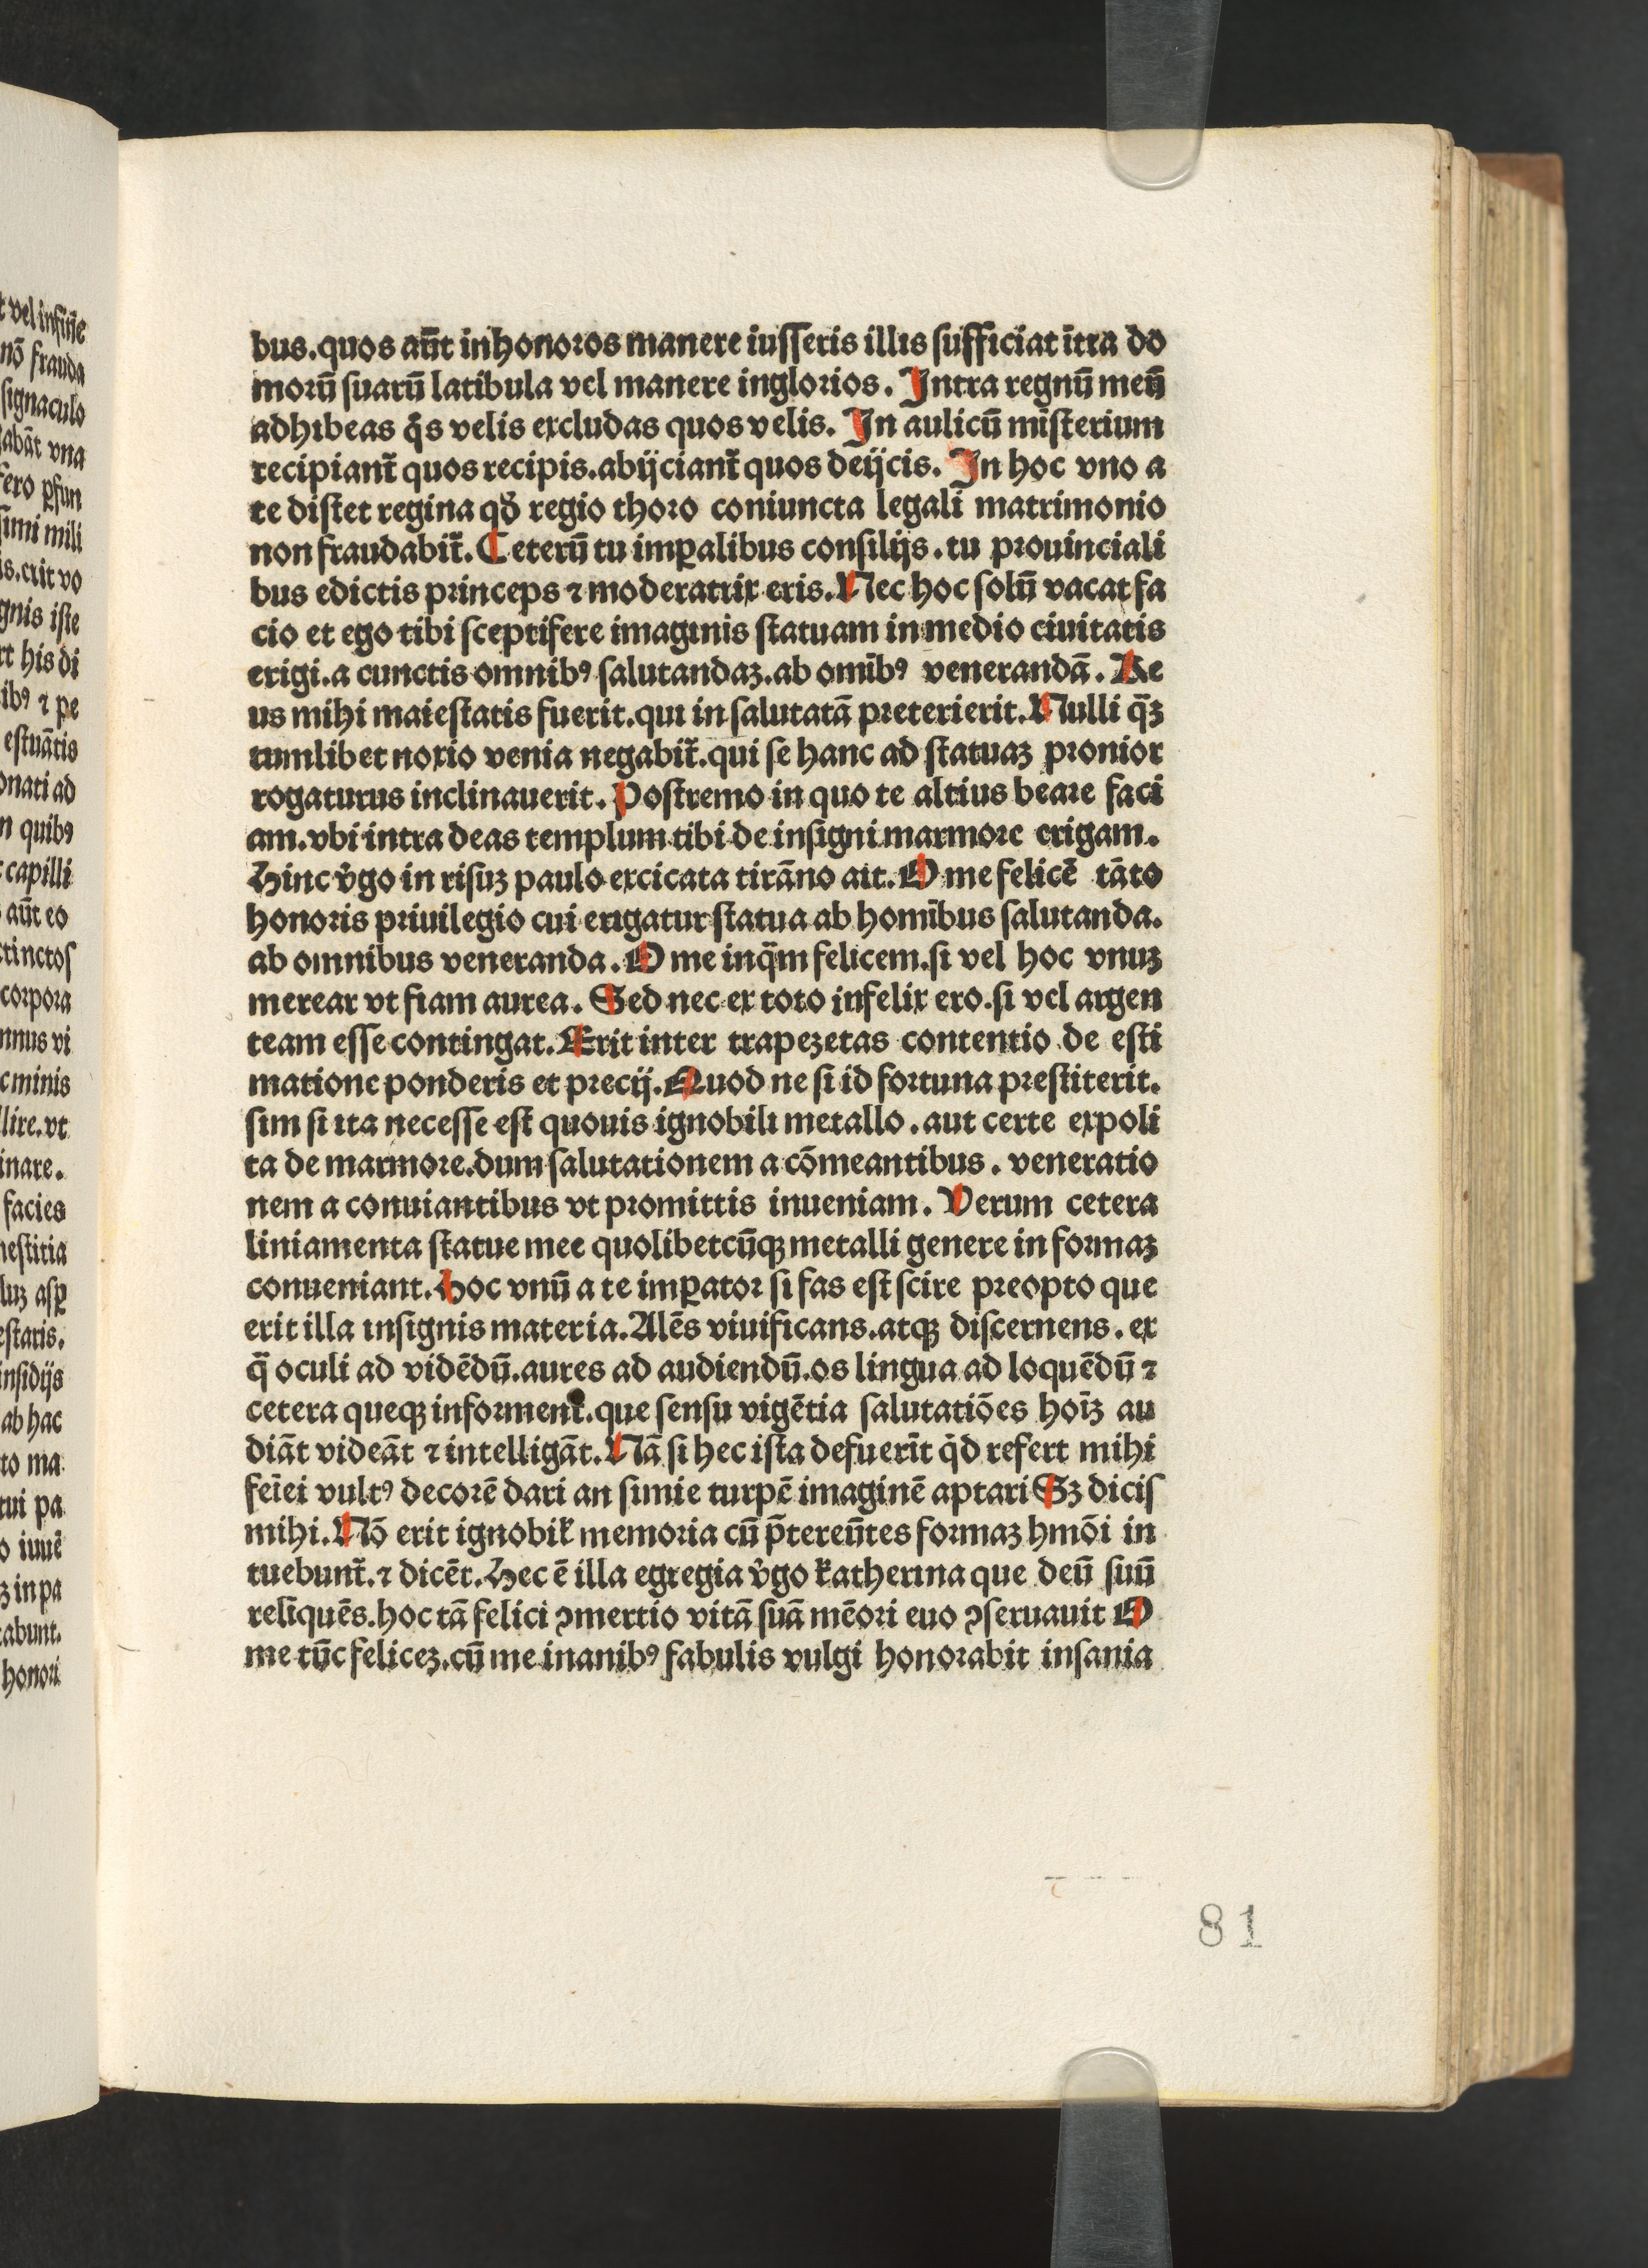 bus.quos aūt inhonoros manere iusseris illis sufficiat ītra do
morū suarū latibula vel manere inglorios. Intra regnū meū
adhibeas q̊s velis excludas quos velis. In aulicū misterium
recipiant̄ quos recipis.abijciant̄ quos deijcis. In hoc vno a
te distet regina qd̓ regio thoro coniuncta legali matrimonio
non fraudabit̄. Ceterū tu imꝑalibus consilijs.tu prouinciali
bus edictis princeps ⁊ moderatrix eris.Nec hoc solū vacat fa
cio et ego tibi sceptifere imaginis statuam in medio ciuitatis
erigi.a cunctis omnibꝰ salutandaꝫ.ab omībꝰ venerandā. Re
us mihi maiestatis fuerit.qui in salutatā preterierit.Nulli q̄ꝫ
tumlibet noxio venia negabit̄.qui se hanc ad statuaꝫ pronior
rogaturus inclinauerit. Postremo in quo te altius beare faci
am.vbi intra deas templum tibi de insigni marmore erigam.
Hinc v̓go in risuꝫ paulo excicata tirāno ait.O me felicē tāto
honoris priuilegio cui erigatur statua ab homībus salutanda.
ab omnibus veneranda.O me inq̄m felicem.si vel hoc vnuꝫ
merear vt fiam aurea. Sed nec ex toto infelix ero.si vel argen
team esse contingat.Erit inter trapezetas contentio de esti
matione ponderis et precij.Quod ne si id fortuna prestiterit.
sim si ita necesse est quouis ignobili metallo.aut certe expoli
ta de marmore.dum salutationem a cōmeantibus. veneratio
nem a conuiantibus vt promittis inueniam. Verum cetera
liniamenta statue mee quolibetcūqꝫ metalli genere in formaꝫ
conueniant.Hoc vnū a te imꝑator si fas est scire preopto que
erit illa insignis materia.Alēs viuificans.atqꝫ discernens.ex
q̄ oculi ad vidēdū.aures ad audiendū.os lingua ad loquēdū ⁊
cetera queqꝫ informent̄.que sensu vigētia salutatiōes hoīꝫ au
diāt videāt ⁊ intelligāt.Nā si hec ista defuerīt q̇d refert mihi
feīei vultꝰ decorē dari an simie turpē imaginē aptari Sꝫ dicis
mihi.Nō erit ignobiƚ memoria cū p̄tereūtes formaꝫ hmōi in
tuebunt̄.⁊ dicēt.Hec ē illa egregia v̓go katherina que deū suū
reliquēs.hoc tā felici ꝯmertio vitā suā mēori euo ꝯseruauit O
me tūc feliceꝫ.cū me inanibꝰ fabulis vulgi honorabit insania
81